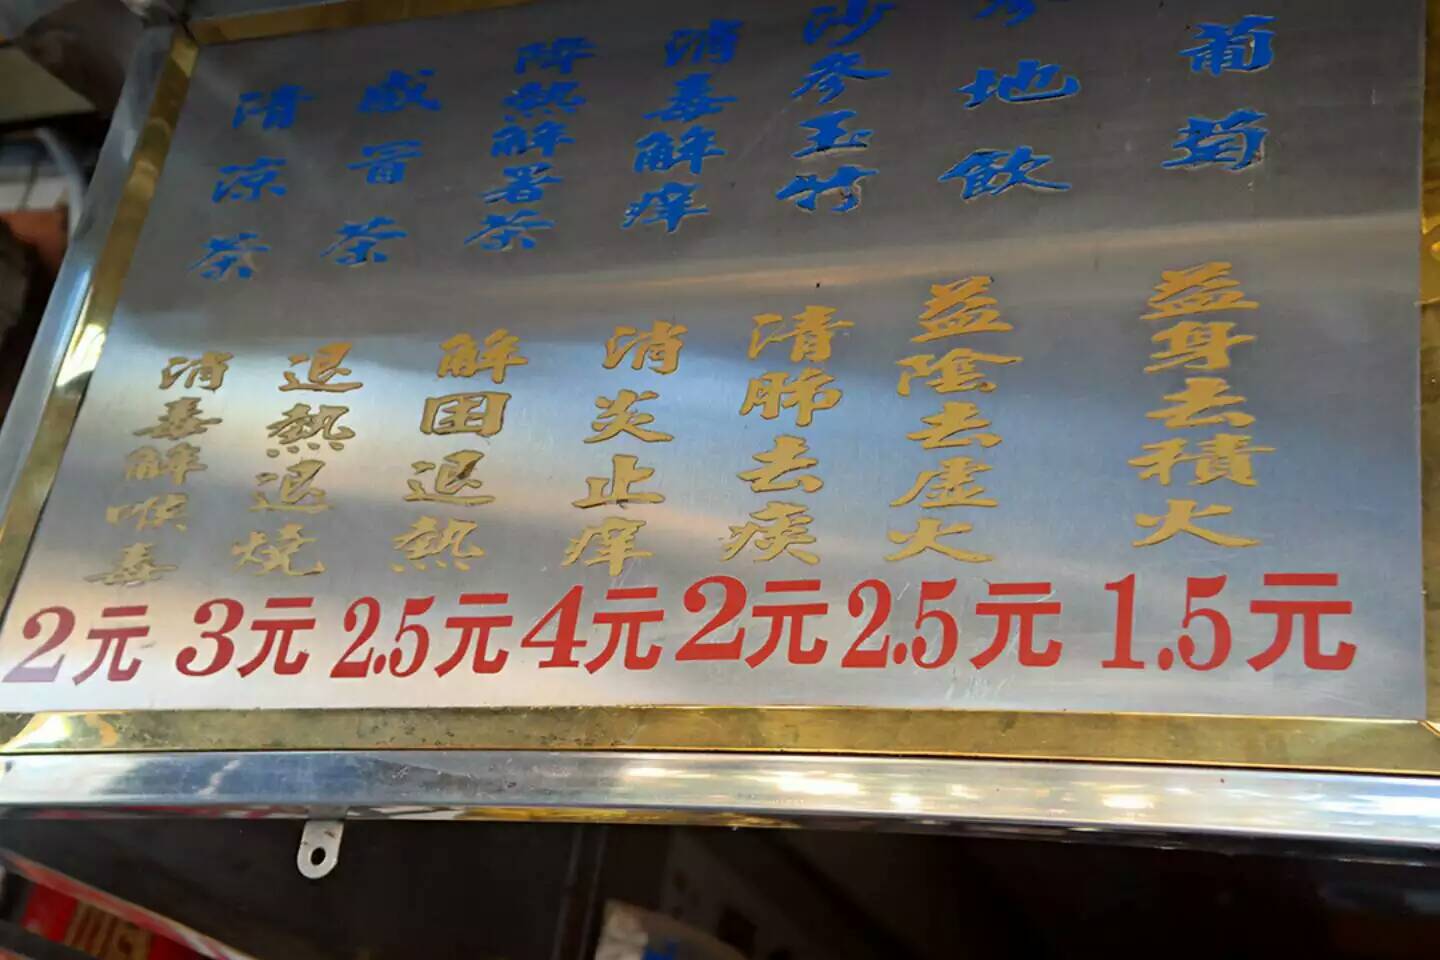 清涼茶
感冒茶
降熱解署茶
消毒解痒
沙参玉竹
地飲
葡菊
消毒解喉毒
退熱退燒
解困退熱
消炎止痒
清肺去痰
益陰去虛火
益身去積火
2元 3元 2.5元 4元 2元 2.5元 1.5元